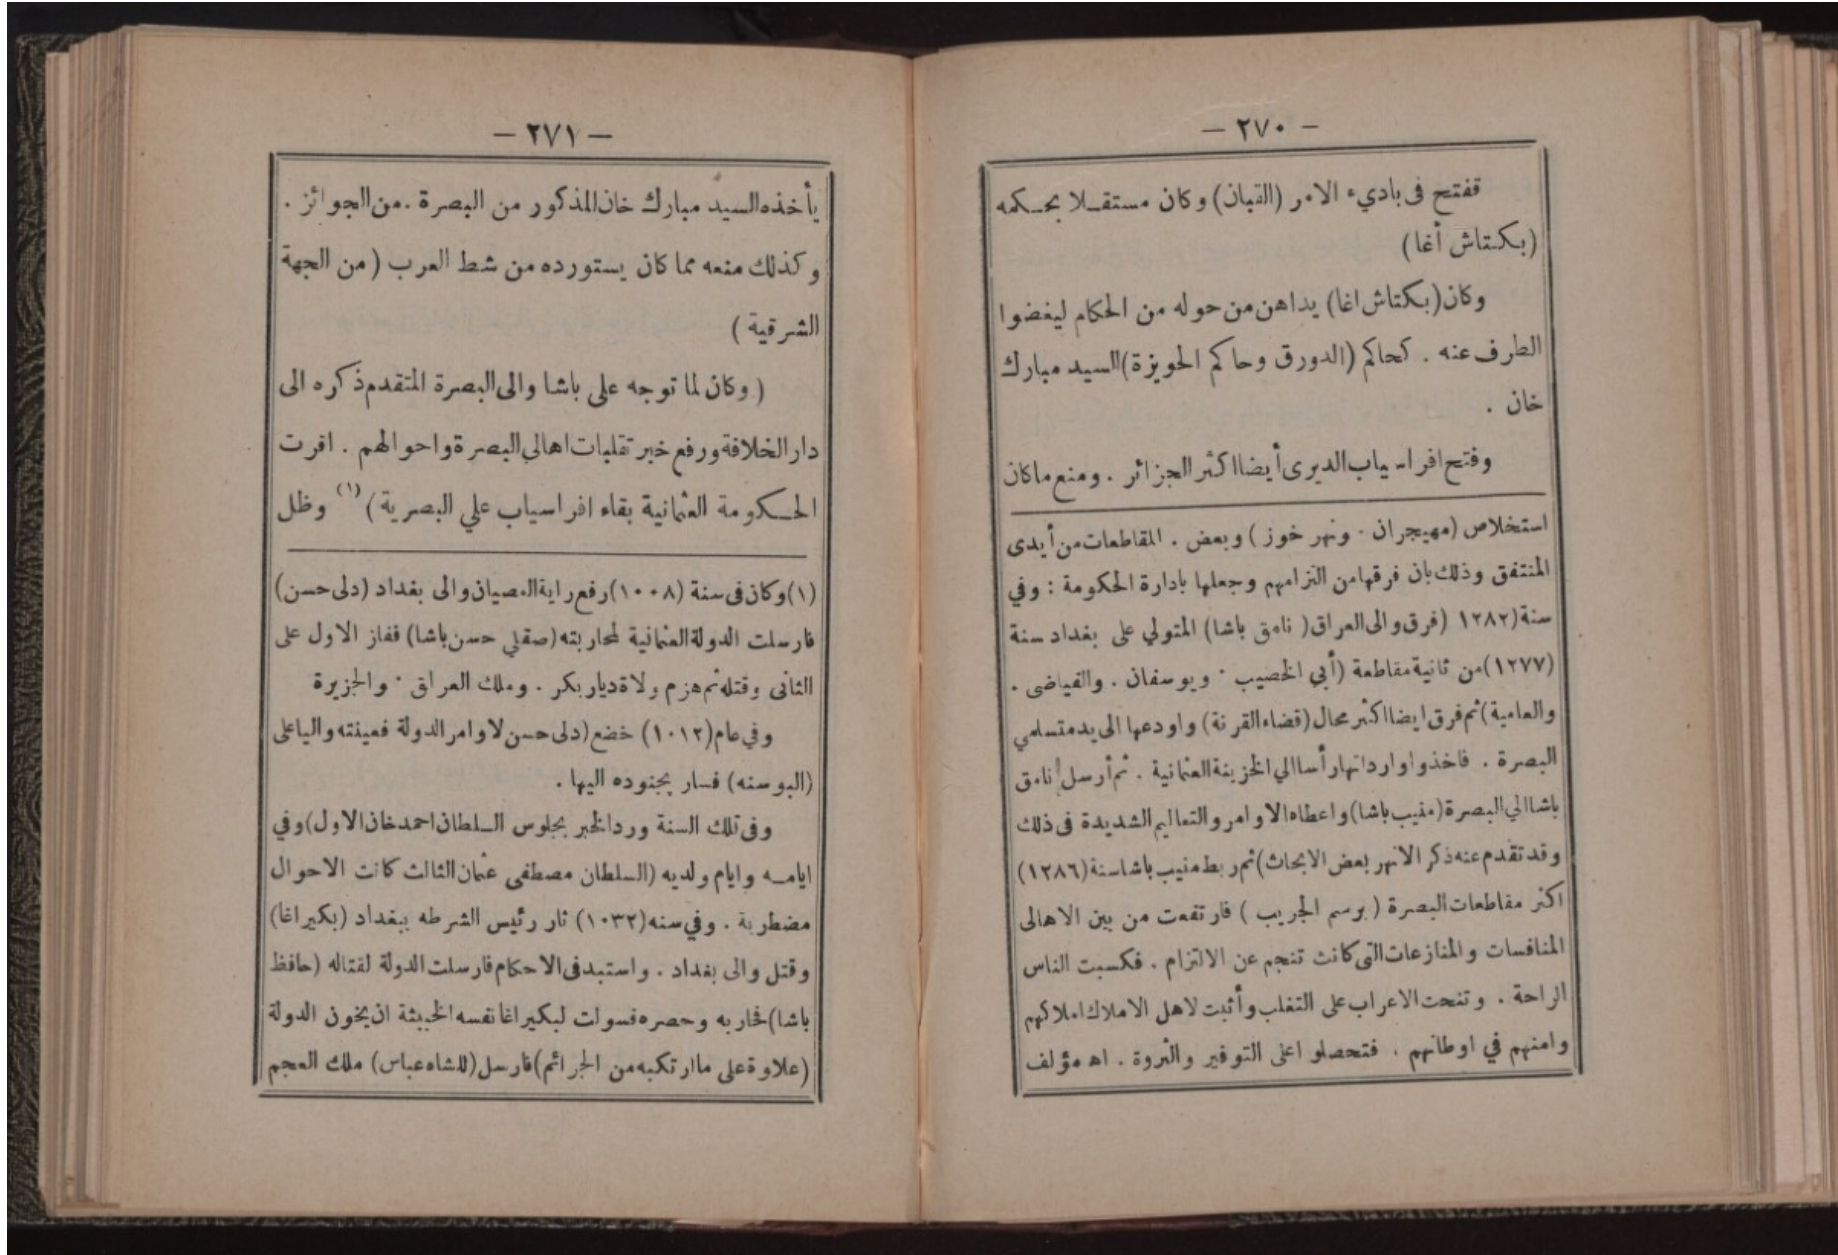 — ٢٧٠ —
ففتح فى باديء الامر (القبان) وكان مستقـلا بحـكمه
(بكتاش أغا)
وكان (بكتاش اغا) يداهن من حوله من الحكام ليغضوا
الطرف عنه . كحاكم (الدورق وحاكم الحويزة) السيد مبارك
خان .
وفتح افراسياب الديرى أيضا اكثر الجزائر . ومنع ما كان
استخلاص (مهيجران . ونهر خوز ) وبعض . المقاطعات من أيدى
المنتفق وذلك بان فرقها من التزامهم وجعلها بادارة الحكومة : وفي
سنة (١٢٨٢ (فرق والى العراق ( نامق باشا) المتولي على بغداد سنة
(١٢٧٧) من ثانية مقاطعة (أبي الخصيب . ويوسفان . والفياضى .
والعامية) ثم فرق ايضا اكثر محال (قضاء القرنة) واودعها الى يد متسلمي
البصرة . فاخذوا وارداتها رأسا الي الخزينة العثمانية . ثم أرسل نامق
باشا الي البصرة (منيب باشا) واعطاه الاوامر والتعاليم الشديدة فى ذلك
وقد تقدم عنه ذكر الانهر بعض الابحاث) ثم ربط منيب باشا سنة (١٢٨٦)
اكثر مقاطعات البصرة ( برسم الجريب ) فارتفعت من بين الاهالى
المنافسات والمنازعات التى كانت تنجم عن الالتزام . فكسبت الناس
الراحة . وتنحت الاعراب على التغلب وأثبت لاهل الاملاك املاكهم
وامنهم في اوطانهم . فتحصلو اعلى التوفير والثروة . اه مؤلف
— ٢٧١ —
يأخذه السيد مبارك خان المذكور من البصرة . من الجوائز .
وكذلك منعه مما كان يستورده من شط العرب ( من الجهة
الشرقية )
( وكان لما توجه على باشا والى البصرة المتقدم ذكره الى
دار الخلافة ورفع خبر تقلبات اهالي البصرة واحوالهم . اقرت
الحـكومة العثمانية بقاء افراسياب علي البصرية ) (١) وظل
(١) وكان فى سنة (١٠٠٨) رفع راية العصيان والى بغداد (دلى حسن)
فارسلت الدولة العثمانية لمحاربته (صقلي حسن باشا) ففاز الاول على
الثانى وقتله ثم هزم ولاة ديار بكر . وملك العراق . والجزيرة
وفي عام (١٠١٢) خضع (دلى حسن لاوامر الدولة فعينته واليا على
(البوسنه) فسار بجنوده اليها .
وفى تلك السنة ورد الخبر بجلوس السلطان احمد خان الاول) وفي
ايامـه وايام ولديه (السلطان مصطفى عثمان الثالث كانت الاحوال
مضطربة . وفي سنه (١٠٣٢) ثار رئيس الشرطه ببغداد (بكير اغا)
وقتل والى بغداد . واستبد فى الاحكام فارسلت الدولة لقتاله (حافظ
باشا) فحاربه وحصره فسولت لبكير اغا نفسه الخبيثة ان يخون الدولة
(علاوة على ما ارتكبه من الجرائم) فارسل (للشاه عباس) ملك العجم